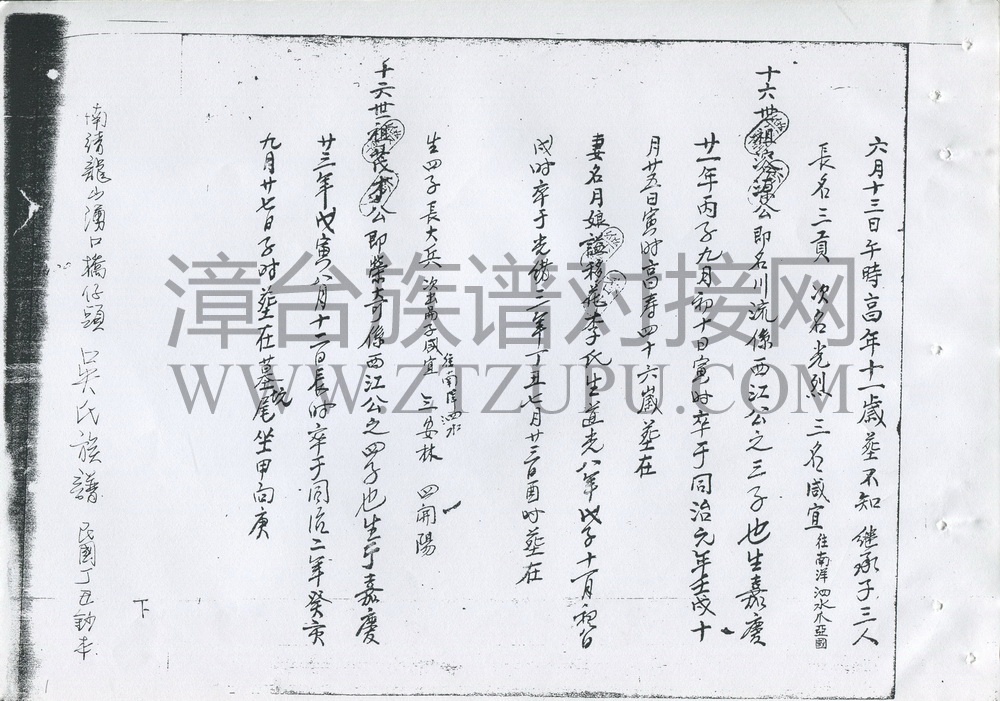 六月十三日午時高年十一歲葬不知 継承子三人
長名三貢 次名光烈 三名咸宜 往南洋泗水木亞國
十六世祖 公即名川流係西江公之三子也生嘉慶
廿一年丙子九月初十日寅时卒于同治元年壬戌十
月廿五日寅时高寿四十六歲葬在
妻名月娘謚移花李氏生道光八年戊子十一月初日
戌时卒于光绪三年丁丑七月廿三日酉时葬在
生四子長大兵 次出嗣子咸宜 往南洋泗水 三安林 四開陽
十六世祖茂 公即榮奇係西江公之四子也生于嘉慶
廿三年戊寅八月十二日辰时卒于同治二年癸亥
九月廿七日子时葬在墓坑尾坐甲向庚
南靖龍山湧口橋仔頭 吴氏族譜 民國丁丑鈔本
下
漳台族谱对接网
WWW.ZTZUPU.COM